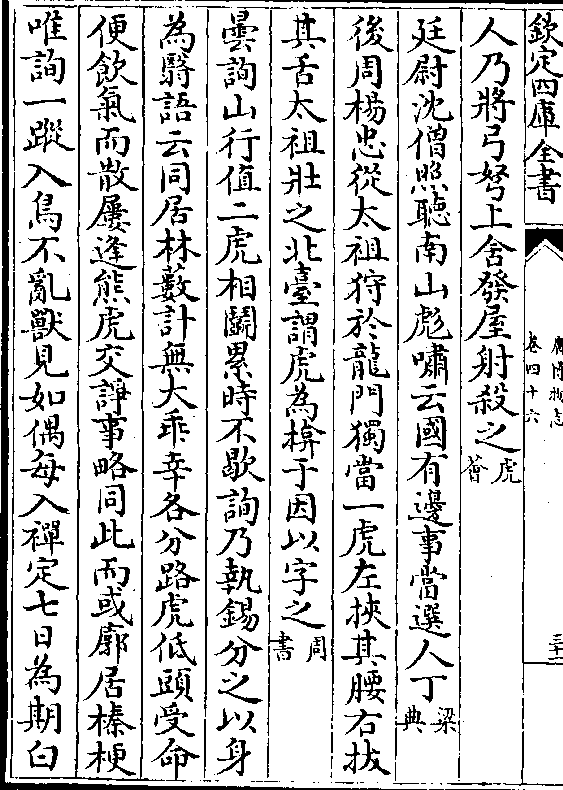 欽定四庫全書
廣博物志
卷四十六
三十二
人乃將弓弩上舍發屋射殺之虎薈
廷尉沈僧照聽南山彪嘯云國有邊事當選人丁梁典
後周楊忠從太祖狩於龍門獨當一虎左挾其腰右拔
其舌太祖壯之北臺謂虎為揜于因以字之周書
曇詢山行值二虎相鬭累時不歇詢乃執錫分之以身
為翳語云同居林藪計無大乖幸各分路虎低頭受命
便飲氣而散屢逢熊虎交諍事略同此而或廓居榛梗
唯詢一蹤入鳥不亂獸見如偶每入禪定七日為期白